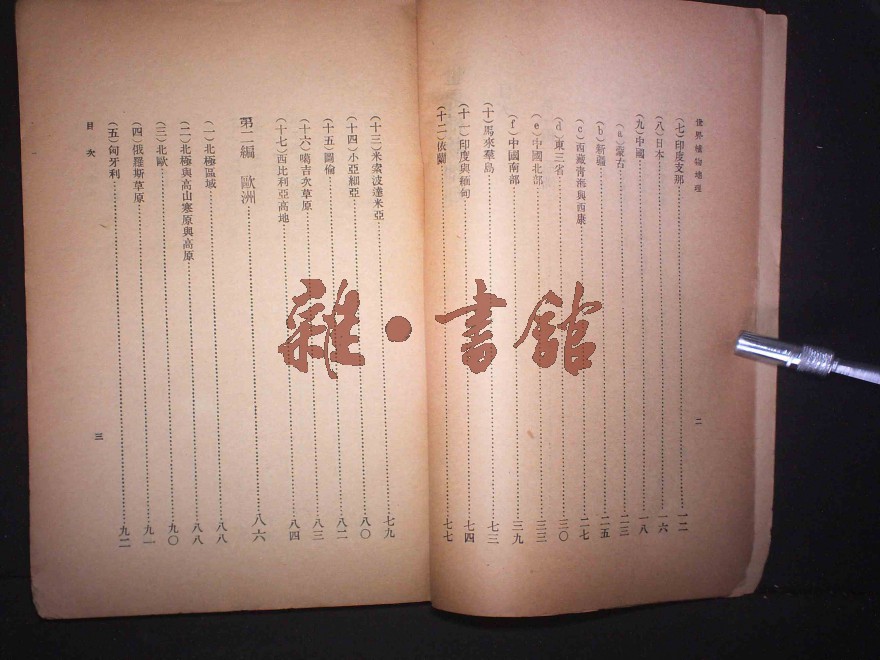 世界植物地理
(七)印度支那……一二
(八)日本……一六
(九)中國……一八
(a)蒙古……二三
(b)新疆……二五
(c)西藏青海與西康……二七
(d)東三省……三〇
(e)中國北部……三三
(f)中國南部……三九
(十)馬來羣島……七三
(十一)印度與緬甸……七四
(十二)依蘭……七七
二
(十三)米索波達米亞……七九
(十四)小亞細亞……八〇
(十五)圖倫……八二
(十六)喀吉次草原……八三
(十七)西比利亞高地……八四
第二編 歐洲……八六
(一)北極區域……八八
(二)北極與高山寒原與高原……八八
(三)北歐……九〇
(四)俄羅斯草原……九一
(五)匈牙利……九二
目次
三
雜·書館